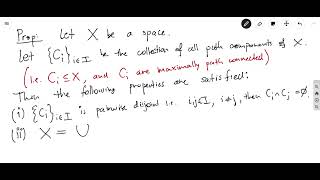 Prop: Let X be a space.
Let {C_i}_{i∈I} be the collection of all path components of X.
(i.e. C_i ⊆ X, and C_i are maximally path connected)
Then the following properties are satisfied:
(i) {C_i}_{i∈I} is pairwise disjoint i.e. i,j∈I, i≠j, then C_i ∩ C_j = ∅.
(ii) X = ∪